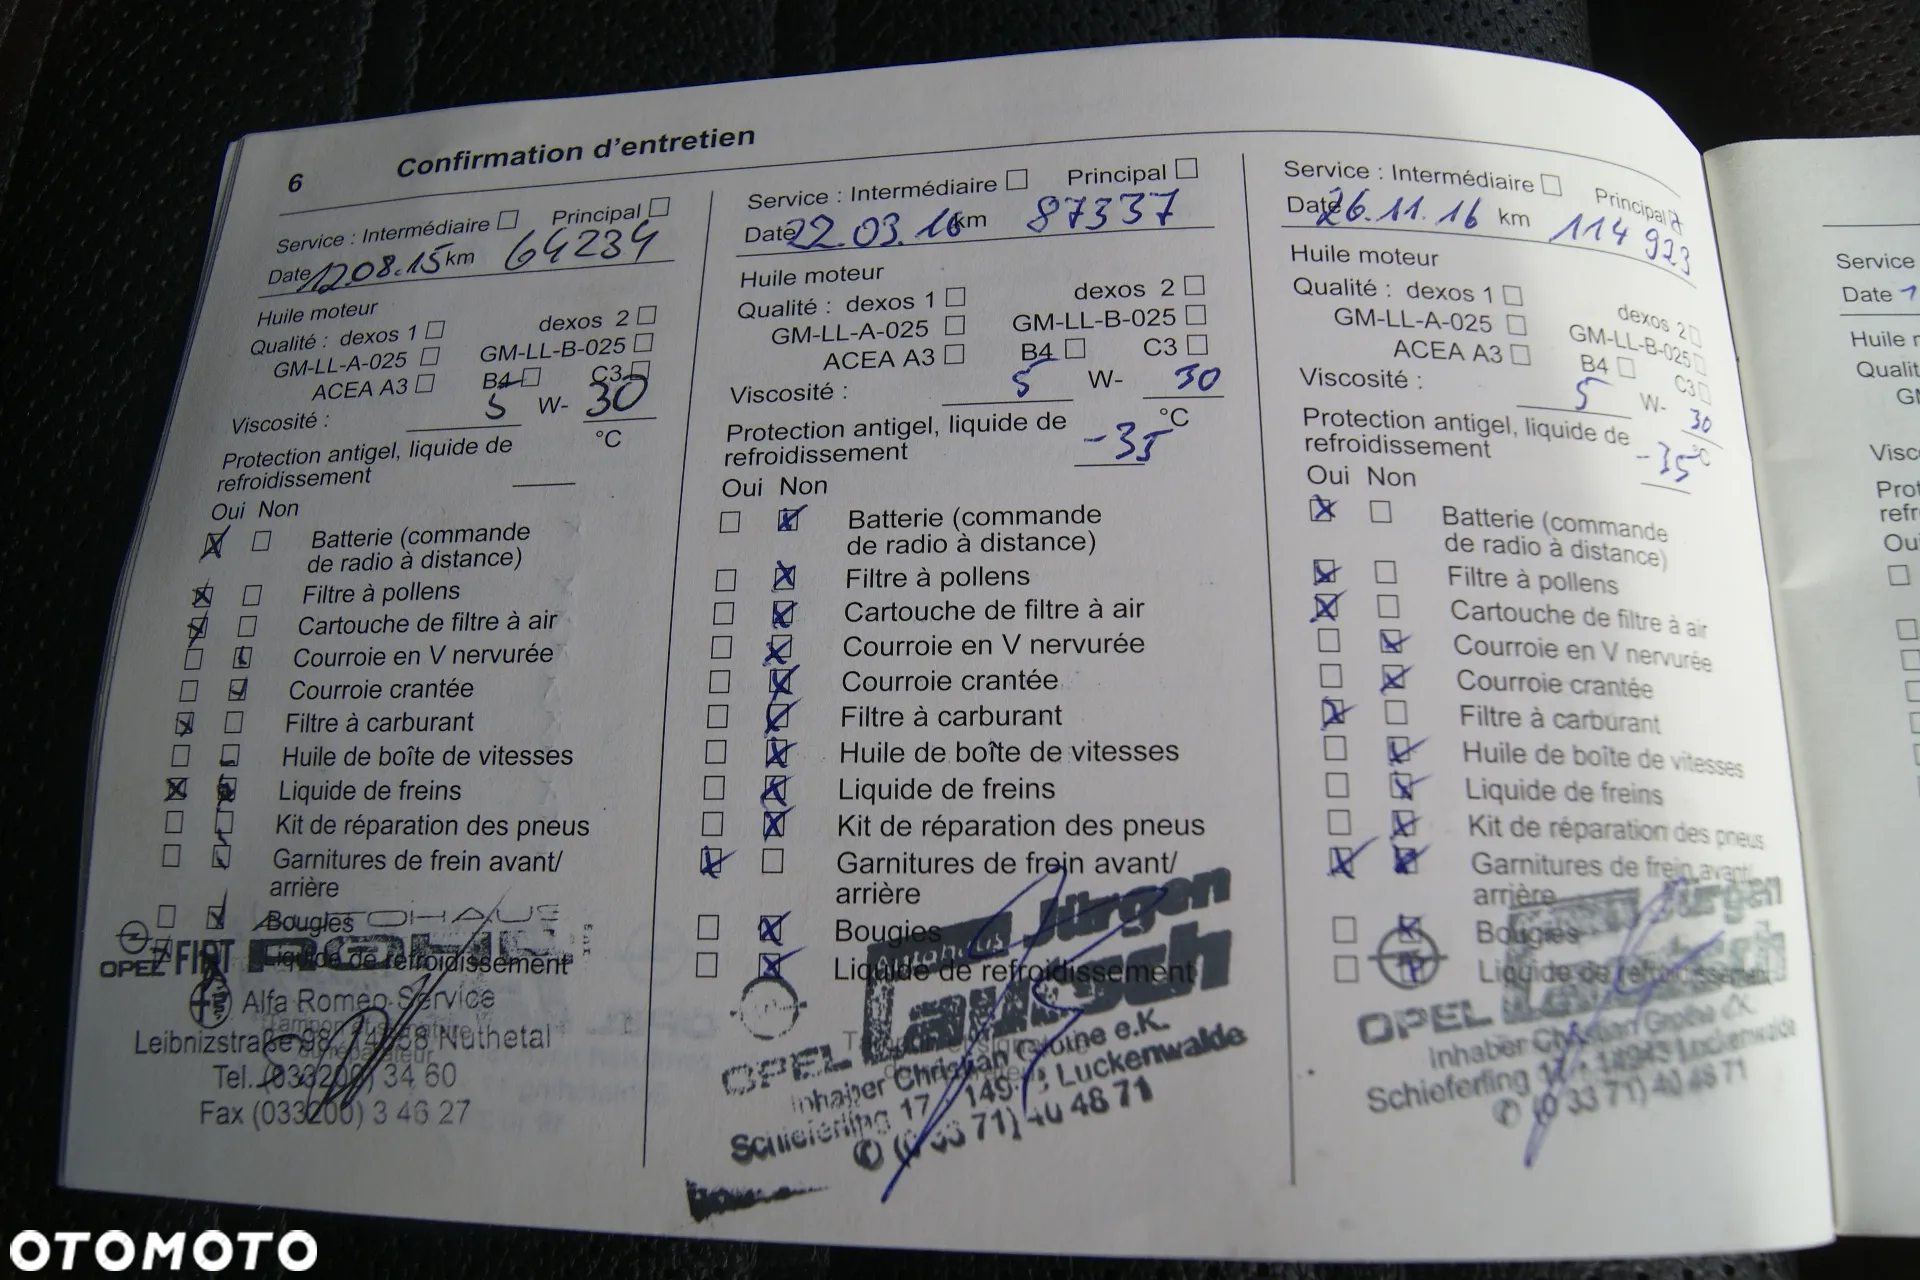 6 Confirmation d'entretien
Service : Intermédiaire Principal
Date 12.08.15 km 64234
Huile moteur
Qualité : dexos 1 dexos 2
GM-LL-A-025 GM-LL-B-025
ACEA A3 B4 C3
Viscosité : 5 W- 30
Protection antigel, liquide de °C
refroidissement
Oui Non
Batterie (commande
de radio à distance)
Filtre à pollens
Cartouche de filtre à air
Courroie en V nervurée
Courroie crantée
Filtre à carburant
Huile de boîte de vitesses
Liquide de freins
Kit de réparation des pneus
Garnitures de frein avant/
arrière
Bougies
AUTOHAUS
OPEL FIAT
Liquide de refroidissement
Alfa Romeo Service
Leibnizstraße Nuthetal
Tel. (033200) 34 60
Fax (033200) 3 46 27
Service : Intermédiaire Principal
Date 22.03.16 km 87337
Huile moteur
Qualité : dexos 1 dexos 2
GM-LL-A-025 GM-LL-B-025
ACEA A3 B4 C3
Viscosité : 5 W- 30
Protection antigel, liquide de °C
refroidissement -35
Oui Non
Batterie (commande
de radio à distance)
Filtre à pollens
Cartouche de filtre à air
Courroie en V nervurée
Courroie crantée
Filtre à carburant
Huile de boîte de vitesses
Liquide de freins
Kit de réparation des pneus
Garnitures de frein avant/
arrière
Bougies
Autohaus Jürgen
Liquide de refroidissement
OPEL
Inhaber Christian e.K.
Schieferling 17 Luckenwalde
(0 33 71) 40 48 71
Service : Intermédiaire Principal
Date 26.11.16 km 114 923
Huile moteur
Qualité : dexos 1 dexos 2
GM-LL-A-025 GM-LL-B-025
ACEA A3 B4 C3
Viscosité : 5 W- 30
Protection antigel, liquide de °C
refroidissement -35
Oui Non
Batterie (commande
de radio à distance)
Filtre à pollens
Cartouche de filtre à air
Courroie en V nervurée
Courroie crantée
Filtre à carburant
Huile de boîte de vitesses
Liquide de freins
Kit de réparation des pneus
Garnitures de frein avant/
arrière
Jürgen
Bougies
Liquide de refroidissement
OPEL
Inhaber Christian e.K.
Schieferling 17 · 14943 Luckenwalde
(0 33 71) 40 48 71
Service
Date
OTOMOTO